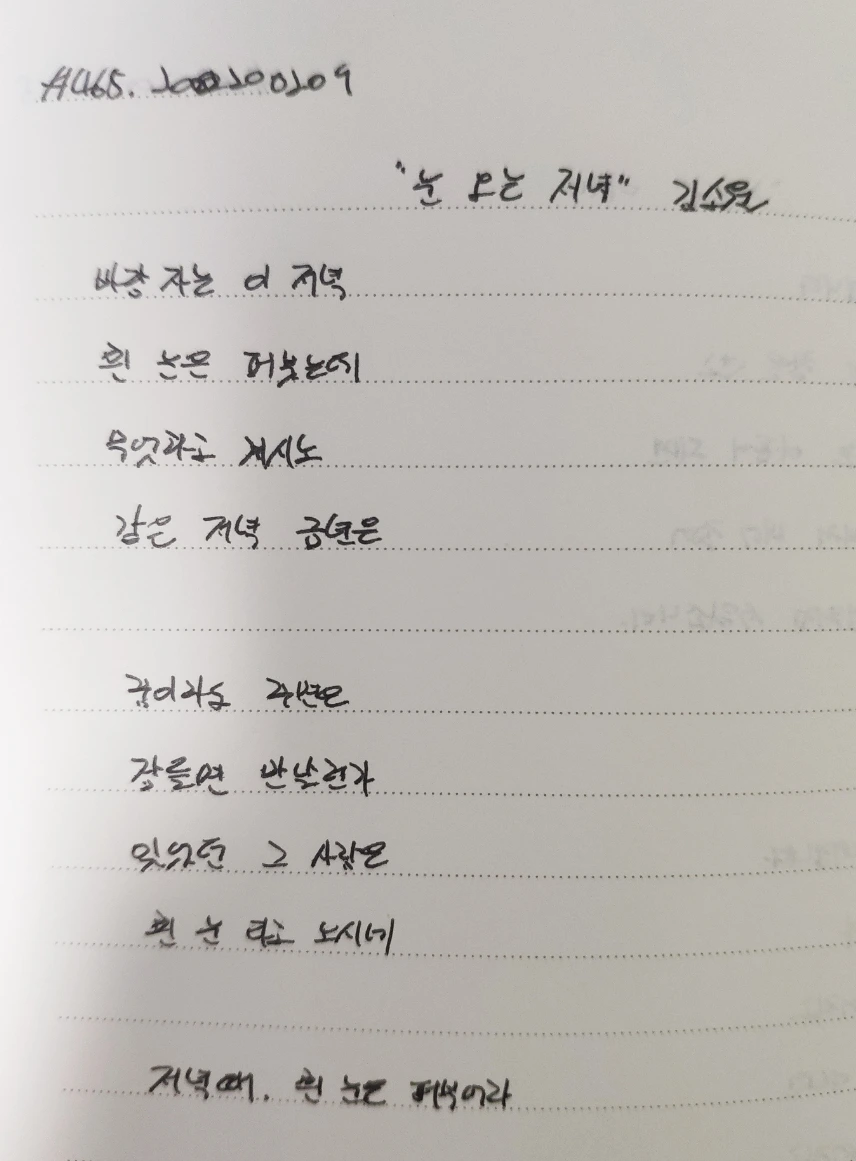 #465. 20200209
"눈 오는 저녁" 김소월
바람 자는 이 저녁
흰 눈은 퍼붓는데
무엇하고 계시노
같은 저녁 금년은
꿈이라도 꾸면은
잠들면 만날런가
잊었던 그 사람은
흰 눈 타고 오시네
저녁때. 흰 눈은 퍼부어라